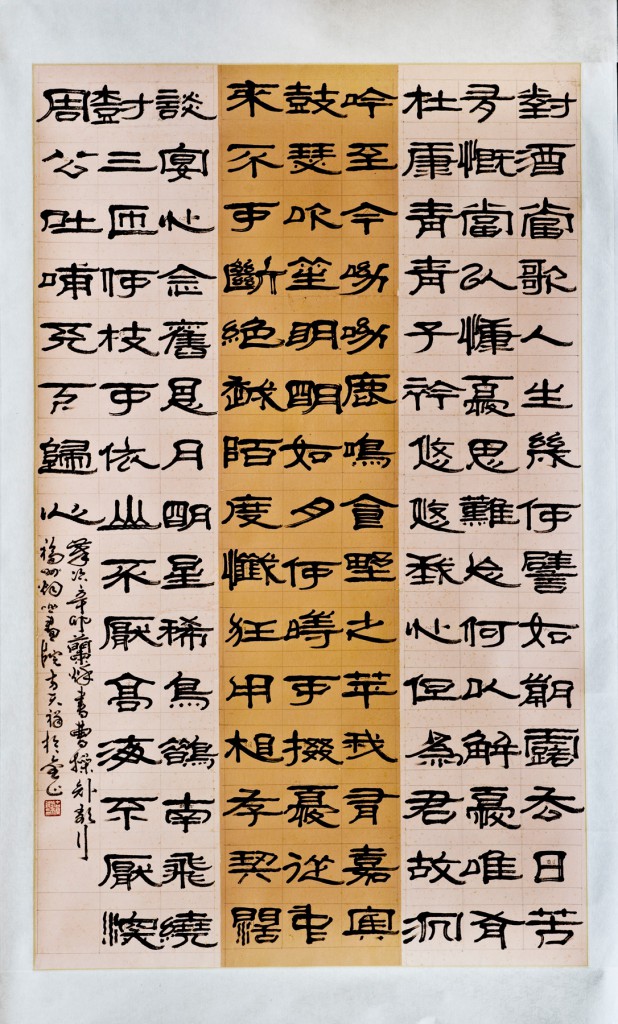 對酒當歌人生幾何譬如朝露去日苦
多慨當以慷憂思難忘何以解憂唯有
杜康青青子衿悠悠我心但為君故沉
吟至今呦呦鹿鳴食野之苹我有嘉賓
鼓瑟吹笙明明如月何時可掇憂從中
來不可斷絕越陌度阡枉用相存契闊
談宴心念舊恩月明星稀烏鵲南飛繞
樹三匝何枝可依山不厭高海不厭深
周公吐哺天下歸心
歲次辛卯蘭秋書曹操短歌行
福州書院方天於金山